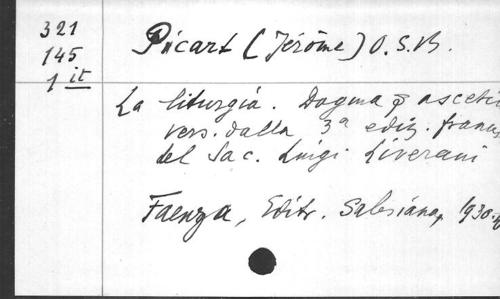 321
145
1 it
Picart (Jérôme) O.S.B.
La liturgia. Dogma e asceti
vers. dalla 3ª ediz. franc
del Sac. Luigi Liverani
Faenza, Editr. Salesiana, 1930.